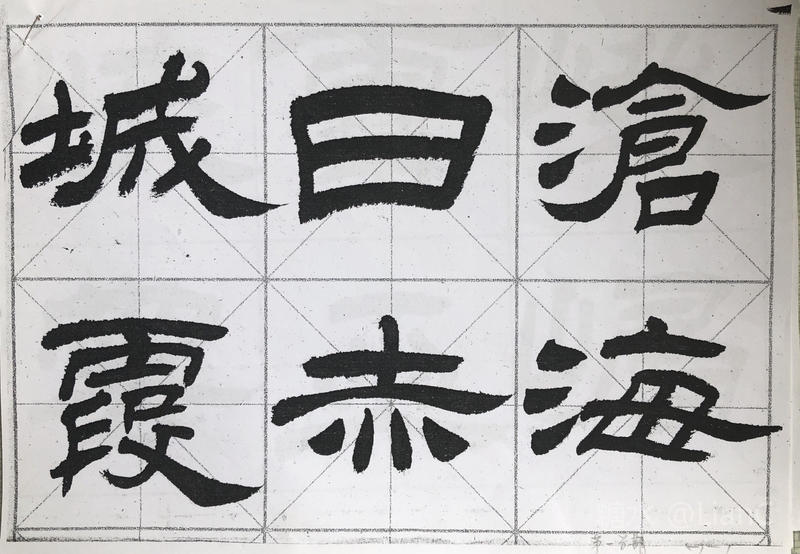 滄海
日赤
城霞